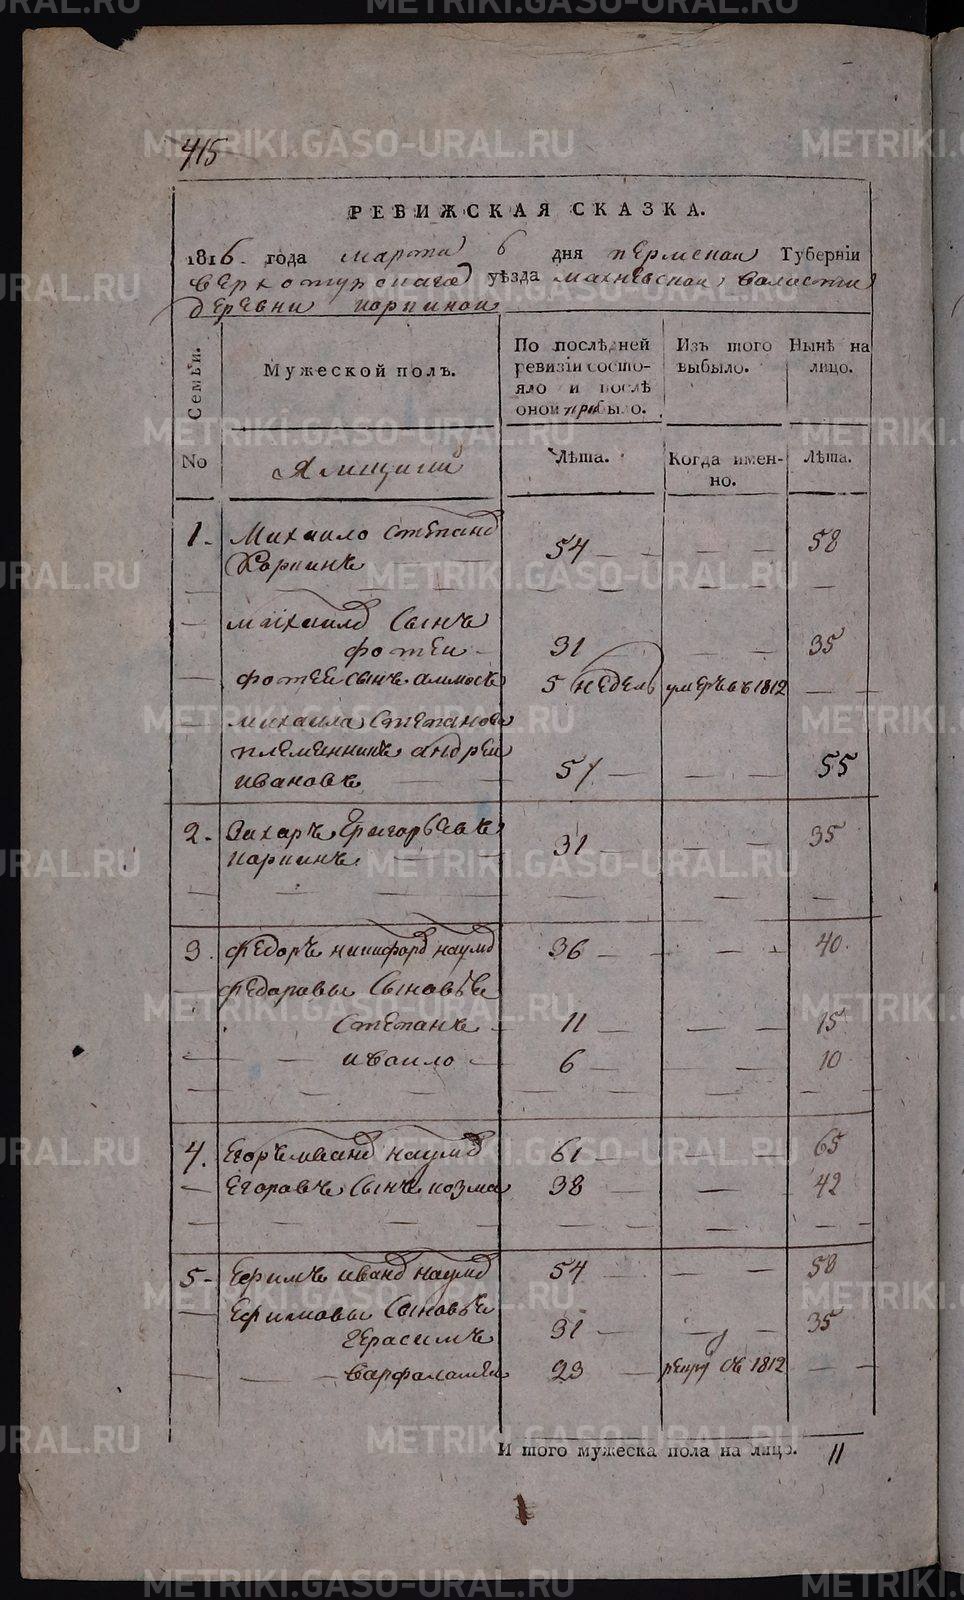 415
РЕВИЖСКАЯ СКАЗКА.
1816 года марта 6 дня пермской Губерніи
верхотурскаго уѣзда махневской валасти
деревни карпиной
Семьи.
No
Мужеской полъ.
Ямщики
По послѣдней ревизіи состо-
яло и послѣ
оной прибыло.
Лѣта.
Изъ того
выбыло.
Когда имен-
но.
Нынѣ на
лицо.
Лѣта.
1. Михаило Степанв 54 58
Карпинъ
михаилв Сынъ
фотеи 31 35
фотеи сынъ аммосъ 5 недель умеръ въ 1812
михаила степанова
племенникъ андреи
ивановъ 51 55
2. Захаръ Григорьевъ 31 35
карпинъ
3. федоръ никифорв наумв 36 40
федоравы Сыновъе
Степанъ 11 15
иваило 6 10
4. Егоръ иванв наумв 61 65
Егоравъ Сынъ козма 38 42
5. Ефимъ иванв наумв 54 58
Ефимовы Сыновъе
Герасимъ 31 35
Варфаламеи 23 рекру въ 1812
И того мужеска пола на лицо. 11
METRIKI.GASO-URAL.RU